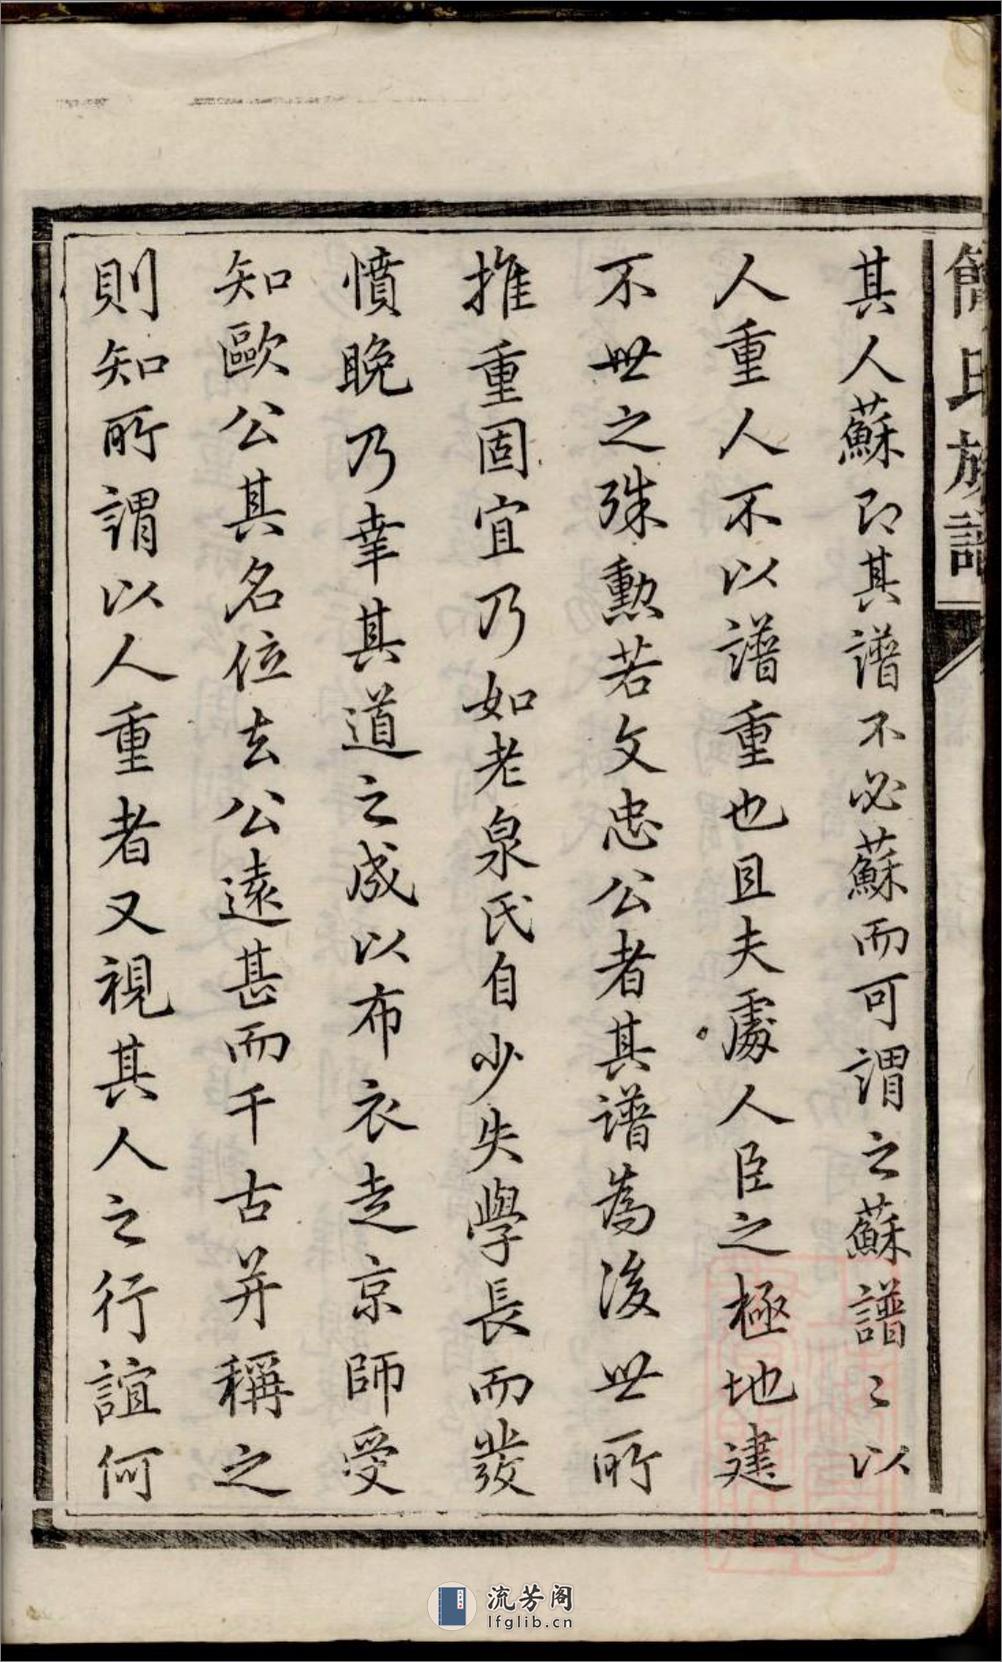 簡氏族譜
其人蘇即其譜不必蘇而可謂之蘇譜〻以
人重人不以譜重也且夫處人臣之極地建
不世之殊勳若文忠公者其譜為後世所
推重固宜乃如老泉氏自少失學長而發
憤晚乃幸其道之成以布衣走京師受
知歐公其名位去公遠甚而千古并稱之
則知所謂以人重者又視其人之行誼何
流芳阁
lfglib.cn